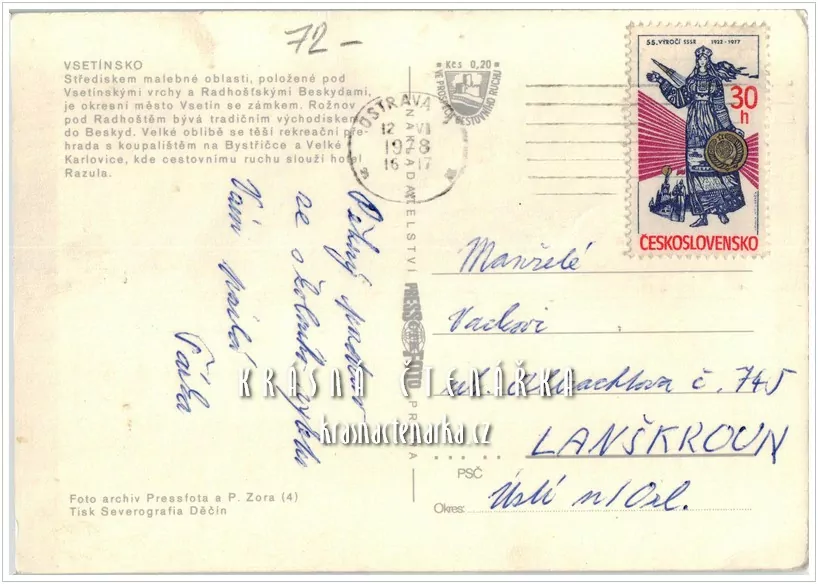 72-
VSETÍNSKO
Střediskem malebné oblasti, položené pod
Vsetínskými vrchy a Radhošťskými Beskydami,
je okresní město Vsetín se zámkem. Rožnov
pod Radhoštěm bývá tradičním východiskem
do Beskyd. Velké oblibě se těší rekreační pře-
hrada s koupalištěm na Bystřičce a Velké
Karlovice, kde cestovnímu ruchu slouží hotel
Razula.
Kčs 0,20
OSTRAVA
12 VI
1978
16-17
55. VÝROČÍ SSSR 1922-1977
30
h
ČESKOSLOVENSKO
Pěkný pozdrav
ze školního výletu
Vám posílá
NAKLADATELSTVÍ PRESSFOTO PRAHA
Manželé
ul. č. 745
LANŠKROUN
PSČ
Okres: Ústí n/Orl.
KRÁSNÁ ČTENÁŘKA
krasnactenarka.cz
Foto archiv Pressfota a P. Zora (4)
Tisk Severografia Děčín